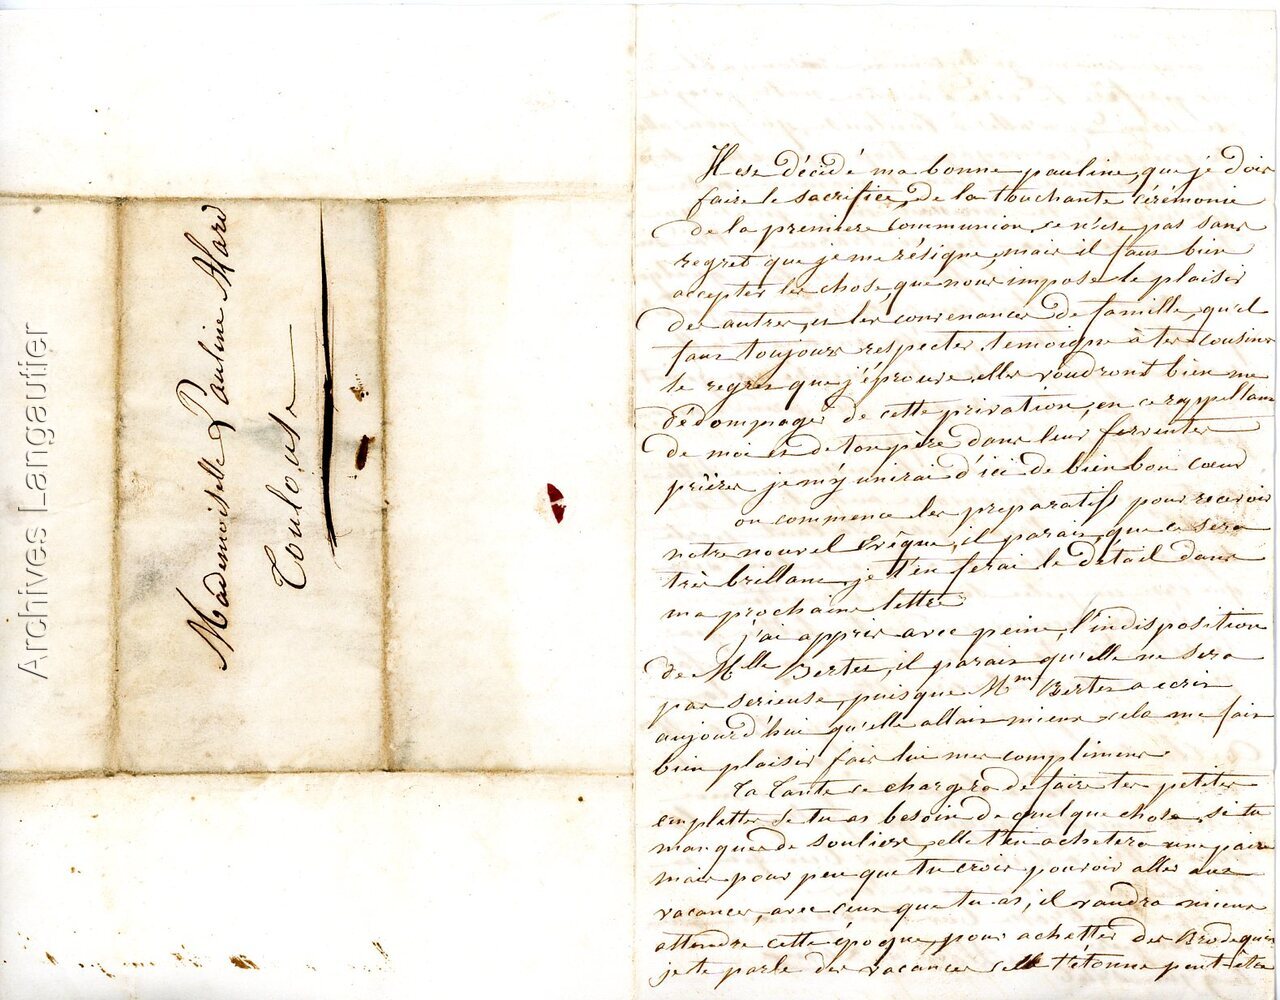 Archives Langautier
Mademoiselle Pauline Alard
Toulouse
Il est décidé ma bonne pauline, que je dois
faire le sacrifice, de la touchante cérémonie
de la premiere communion, ce n'est pas sans
regret que je me résigne, mais il faut bien
accepter les chose, que nous impose le plaisir
des autres, et les convenances de famille, qu'il
faut toujours respecter, temoigne à tes cousines
le regret que j'éprouve, elles voudront bien me
dédomager de cette privation, en ce rappellant
de moi et de ton père dans leur ferventes
prières, je m'y unirai d'ici de bien bon cœur
on commence les preparatifs pour recevoir
notre nouvel Evêque, il parait que ce sera
très brillant, je t'en ferai le détail dans
ma prochaine lettre
j'ai appris avec peine, l'indisposition
de Mlle Bertes, il parait qu'elle ne sera
pas serieuse, puisque Mme Bertes a ecrit
aujourd'hui qu'elle allait mieux, cela me fait
bien plaisir, fais lui mes compliments
Ta Tante se chargera de faire tes petites
emplettes si tu as besoin de quelque chose, si tu
manques de souliers, elle t'en achetera une paire
mais pour peu que tu crois pouvoir aller aux
vacances, avec ceux que tu as, il vaudra mieux
attendre cette époque, pour achetter des Brodequins
je te parle des vacances cela t'étonne peut être